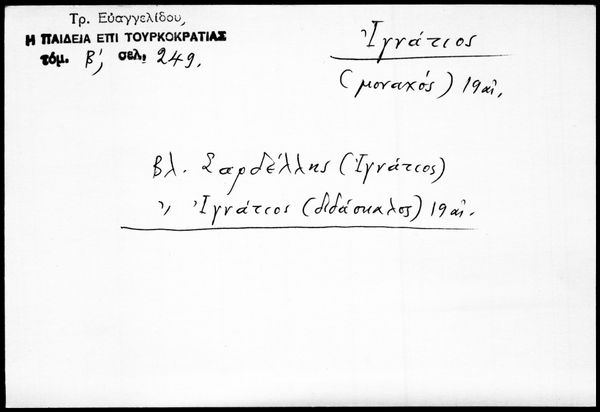 Τρ. Εὐαγγελίδου,
Η ΠΑΙΔΕΙΑ ΕΠΙ ΤΟΥΡΚΟΚΡΑΤΙΑΣ
τόμ. Β', σελ. 249.
Ἰγνάτιος
(μοναχός) 19 αἰ.
Βλ. Σαρδέλλης (Ἰγνάτιος)
" Ἰγνάτιος (διδάσκαλος) 19 αἰ.